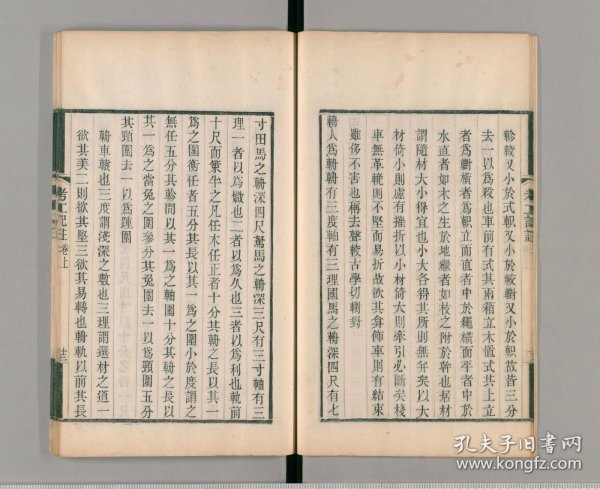 軫較又小於式軹又小於較轛又小於軹故皆三分
去一以爲殺也車前有式其兩箱立木置式其上立
者爲轛橫者爲軹立而直者中於繩橫而平者中於
水直者如木之生於地繼者如枝之附於幹也居材
謂隨材大小得宜也小大各得其所則無弊矣以大
材倚小則慮有摧折以小材倚大則牽引必斷矣棧
車無革鞔則不堅而易折故欲其弇飾車則有結束
雖侈不害也稱去聲較古學切轛對
輈人爲輈輈有三度軸有三理國馬之輈深四尺有七
寸田馬之輈深四尺駑馬之輈深三尺有三寸軸有三
理一者以爲媺也二者以爲久也三者以爲利也軓前
十尺而策半之凡任木任正者十分其輈之長以其一
爲之圍衡任者五分其長以其一爲之圍小於度謂之
無任五分其軫間以其一爲之軸圍十分其輈之長以
其一爲之當兔之圍參分其兔圍去一以爲頸圍五分
其頸圍去一以爲踵圍
輈車轅也三度謂淺深之數也三理謂選材之道一
欲其美二則欲其堅三欲其易轉也輈軌以前其長
考工記注 卷上
十三
孔夫子旧书网
www.kongfz.com